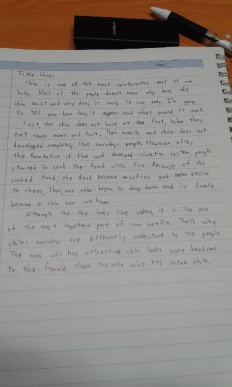 Title: Chins
Chin is one of the most uninteresting part of our
body. Most of the people doesn't know why does the
chin exist and why does it work to our body. I'm going
to tell you how does it appear and what does it work.
First, the chin does not have at the first, when they
eat range meat and fruits. Their muscle and chin does not
developed completely like nowadays people. However, after
the foundation of fire and developed civilization people
started to cook the food with fire. Because of the
cooked food, the food became smaller and more easier
to chew. Thus, our chin began to drop down and is finally
become a chin now we have.
Although the chin looks like useless, it is the one
of the most important part of our That's why
chins nowadays are differently understood to the people.
The men who has attracting chin looks more handsome
to the female than the men who has weak chin.